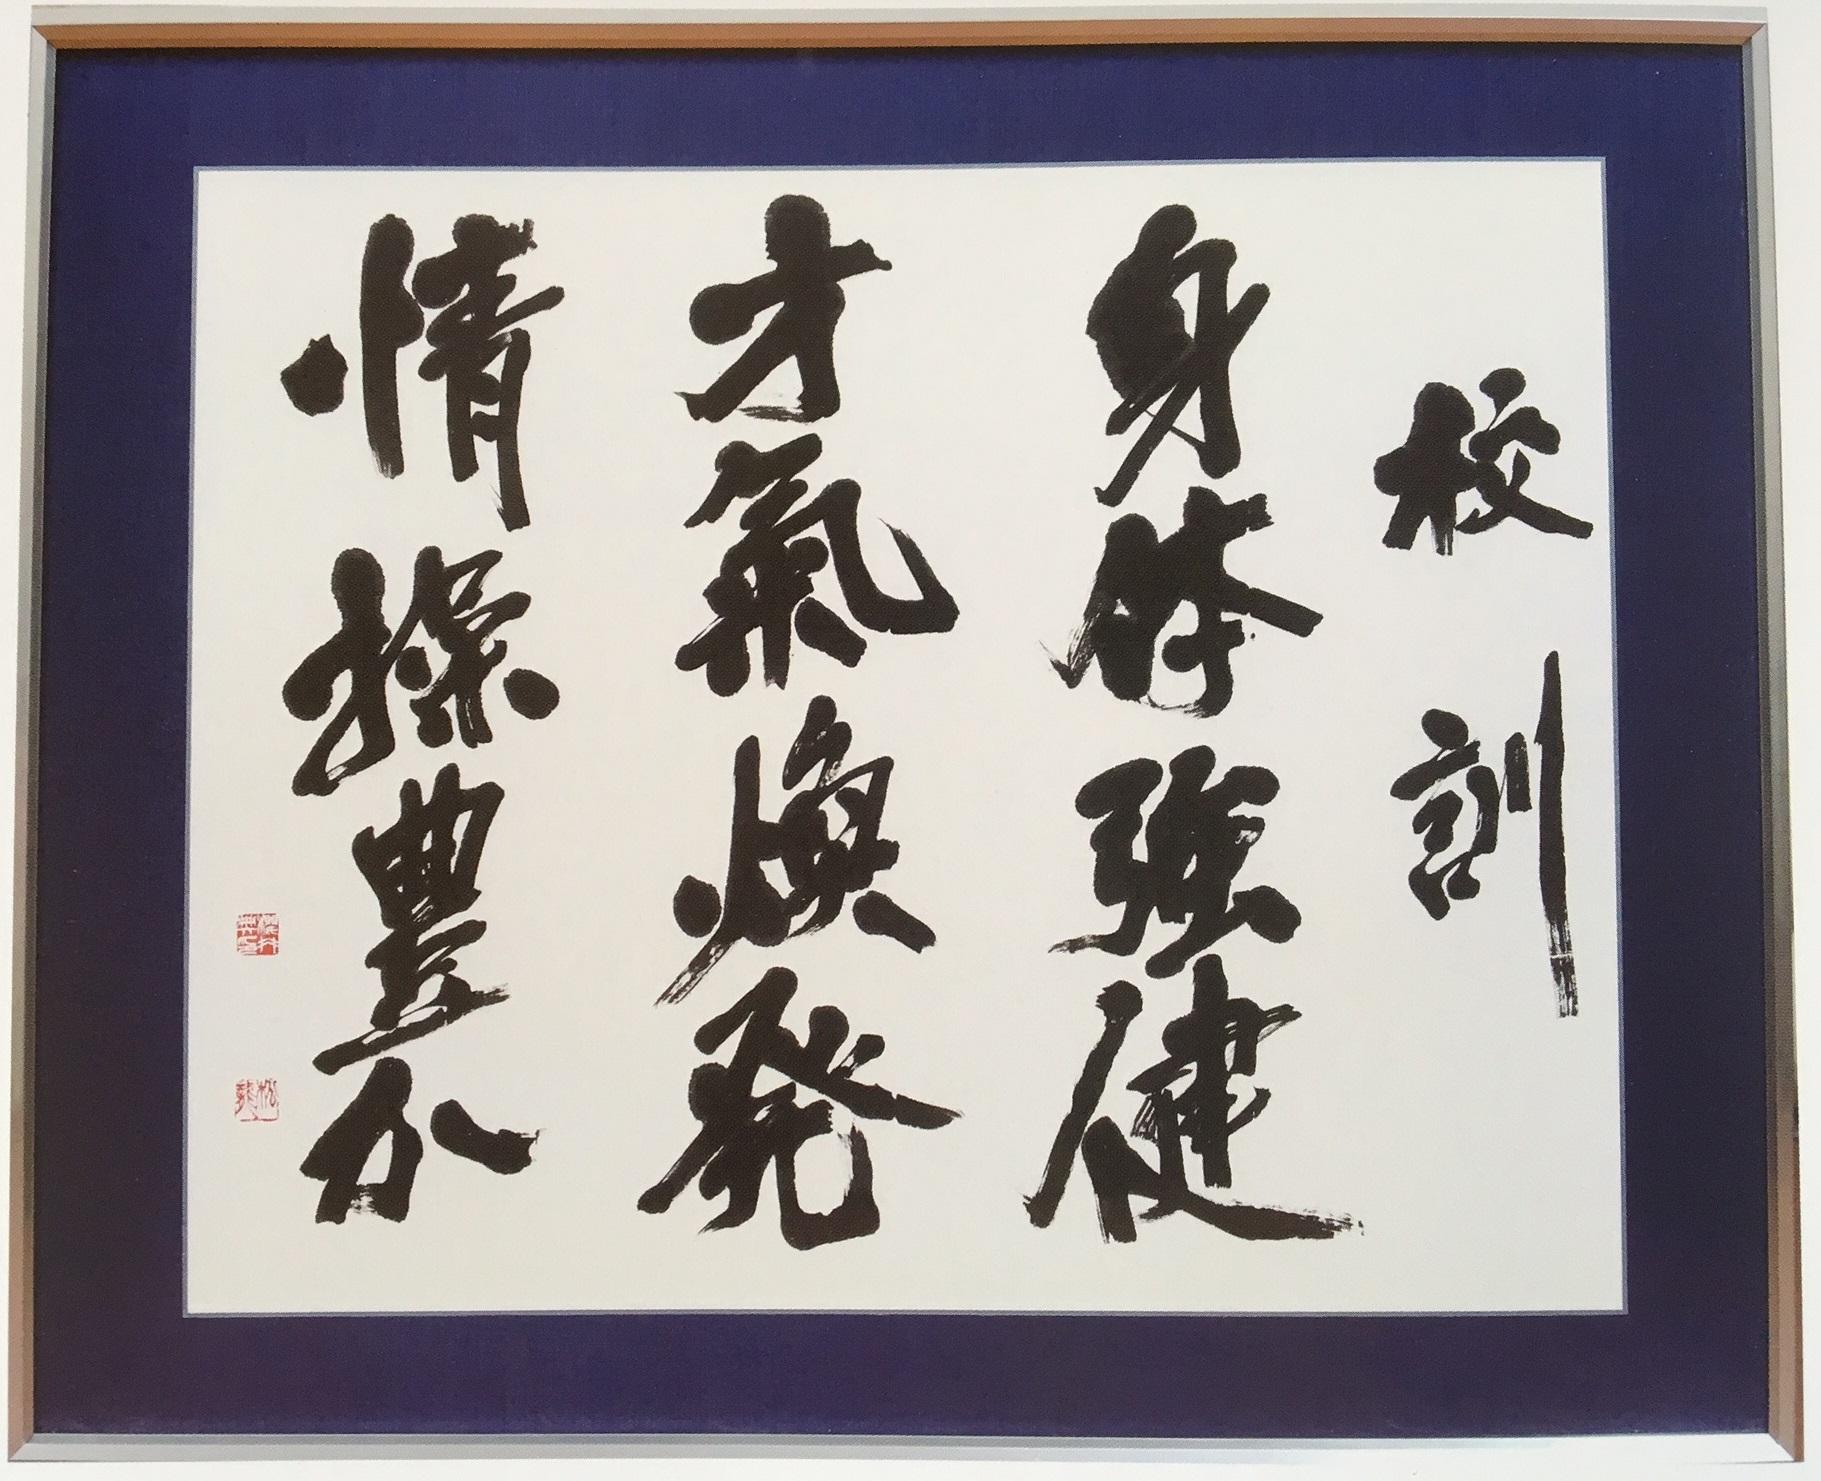 校訓
身体強健
才氣煥発
情操豊か